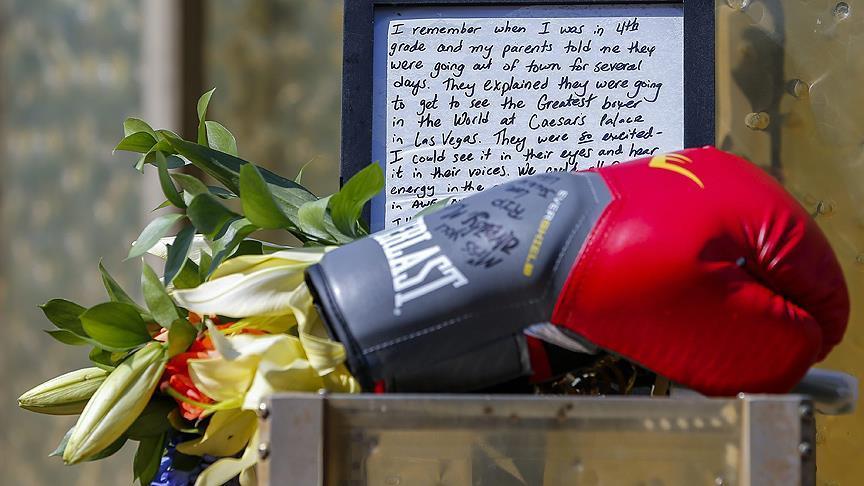 I remember when I was in 4th
grade and my parents told me they
were going out of town for several
days. They explained they were going
to get to see the Greatest boxer
in the World at Caesar's Palace
in Las Vegas. They were so excited-
I could see it in their eyes and hear
it in their voices. We
energy in the
in
I
EVERSHIELD
RIP
Miss you
already
BLAST